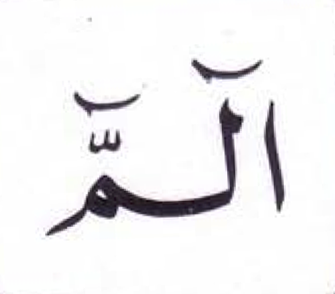 الٓمّٓ